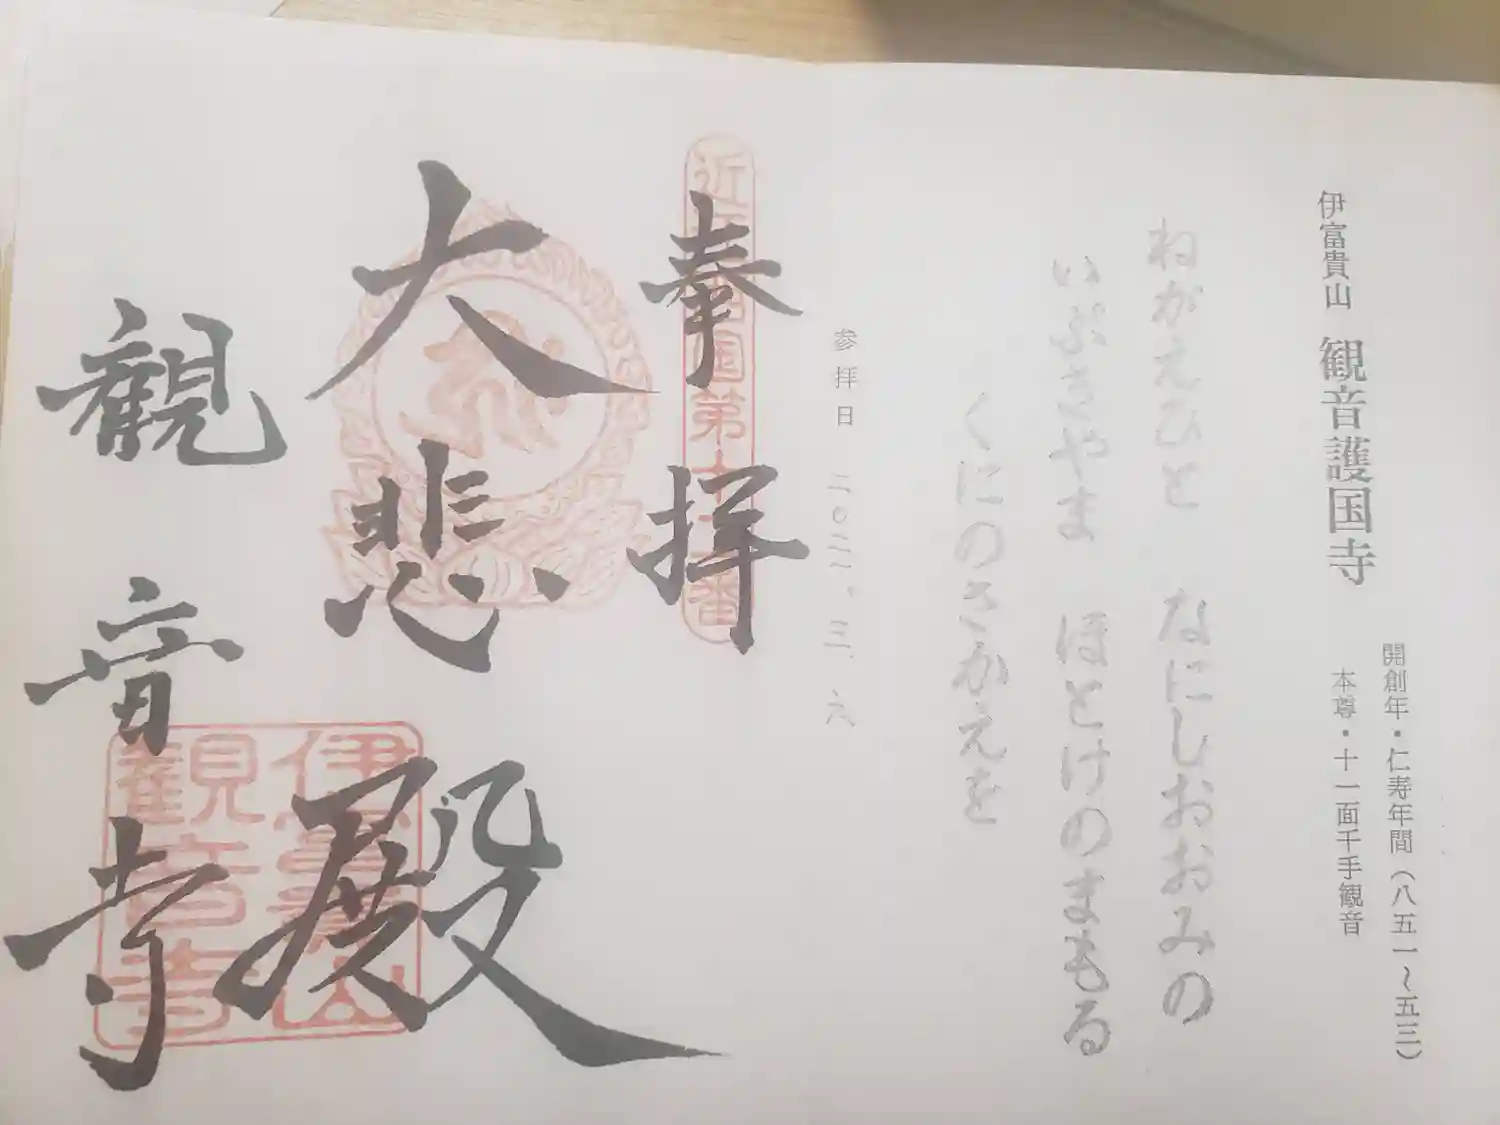 開創年・仁寿年間（八五一〜五三）
伊富貴山 観音護国寺
本尊・十一面千手観音
ねがえひと なにしおおみの
いぶきやま ほとけのまもる
くにのさかえを
参拝日 二〇二二、三、六
奉拝
大悲殿
觀音寺
国第十二番
伊富貴山
観音寺